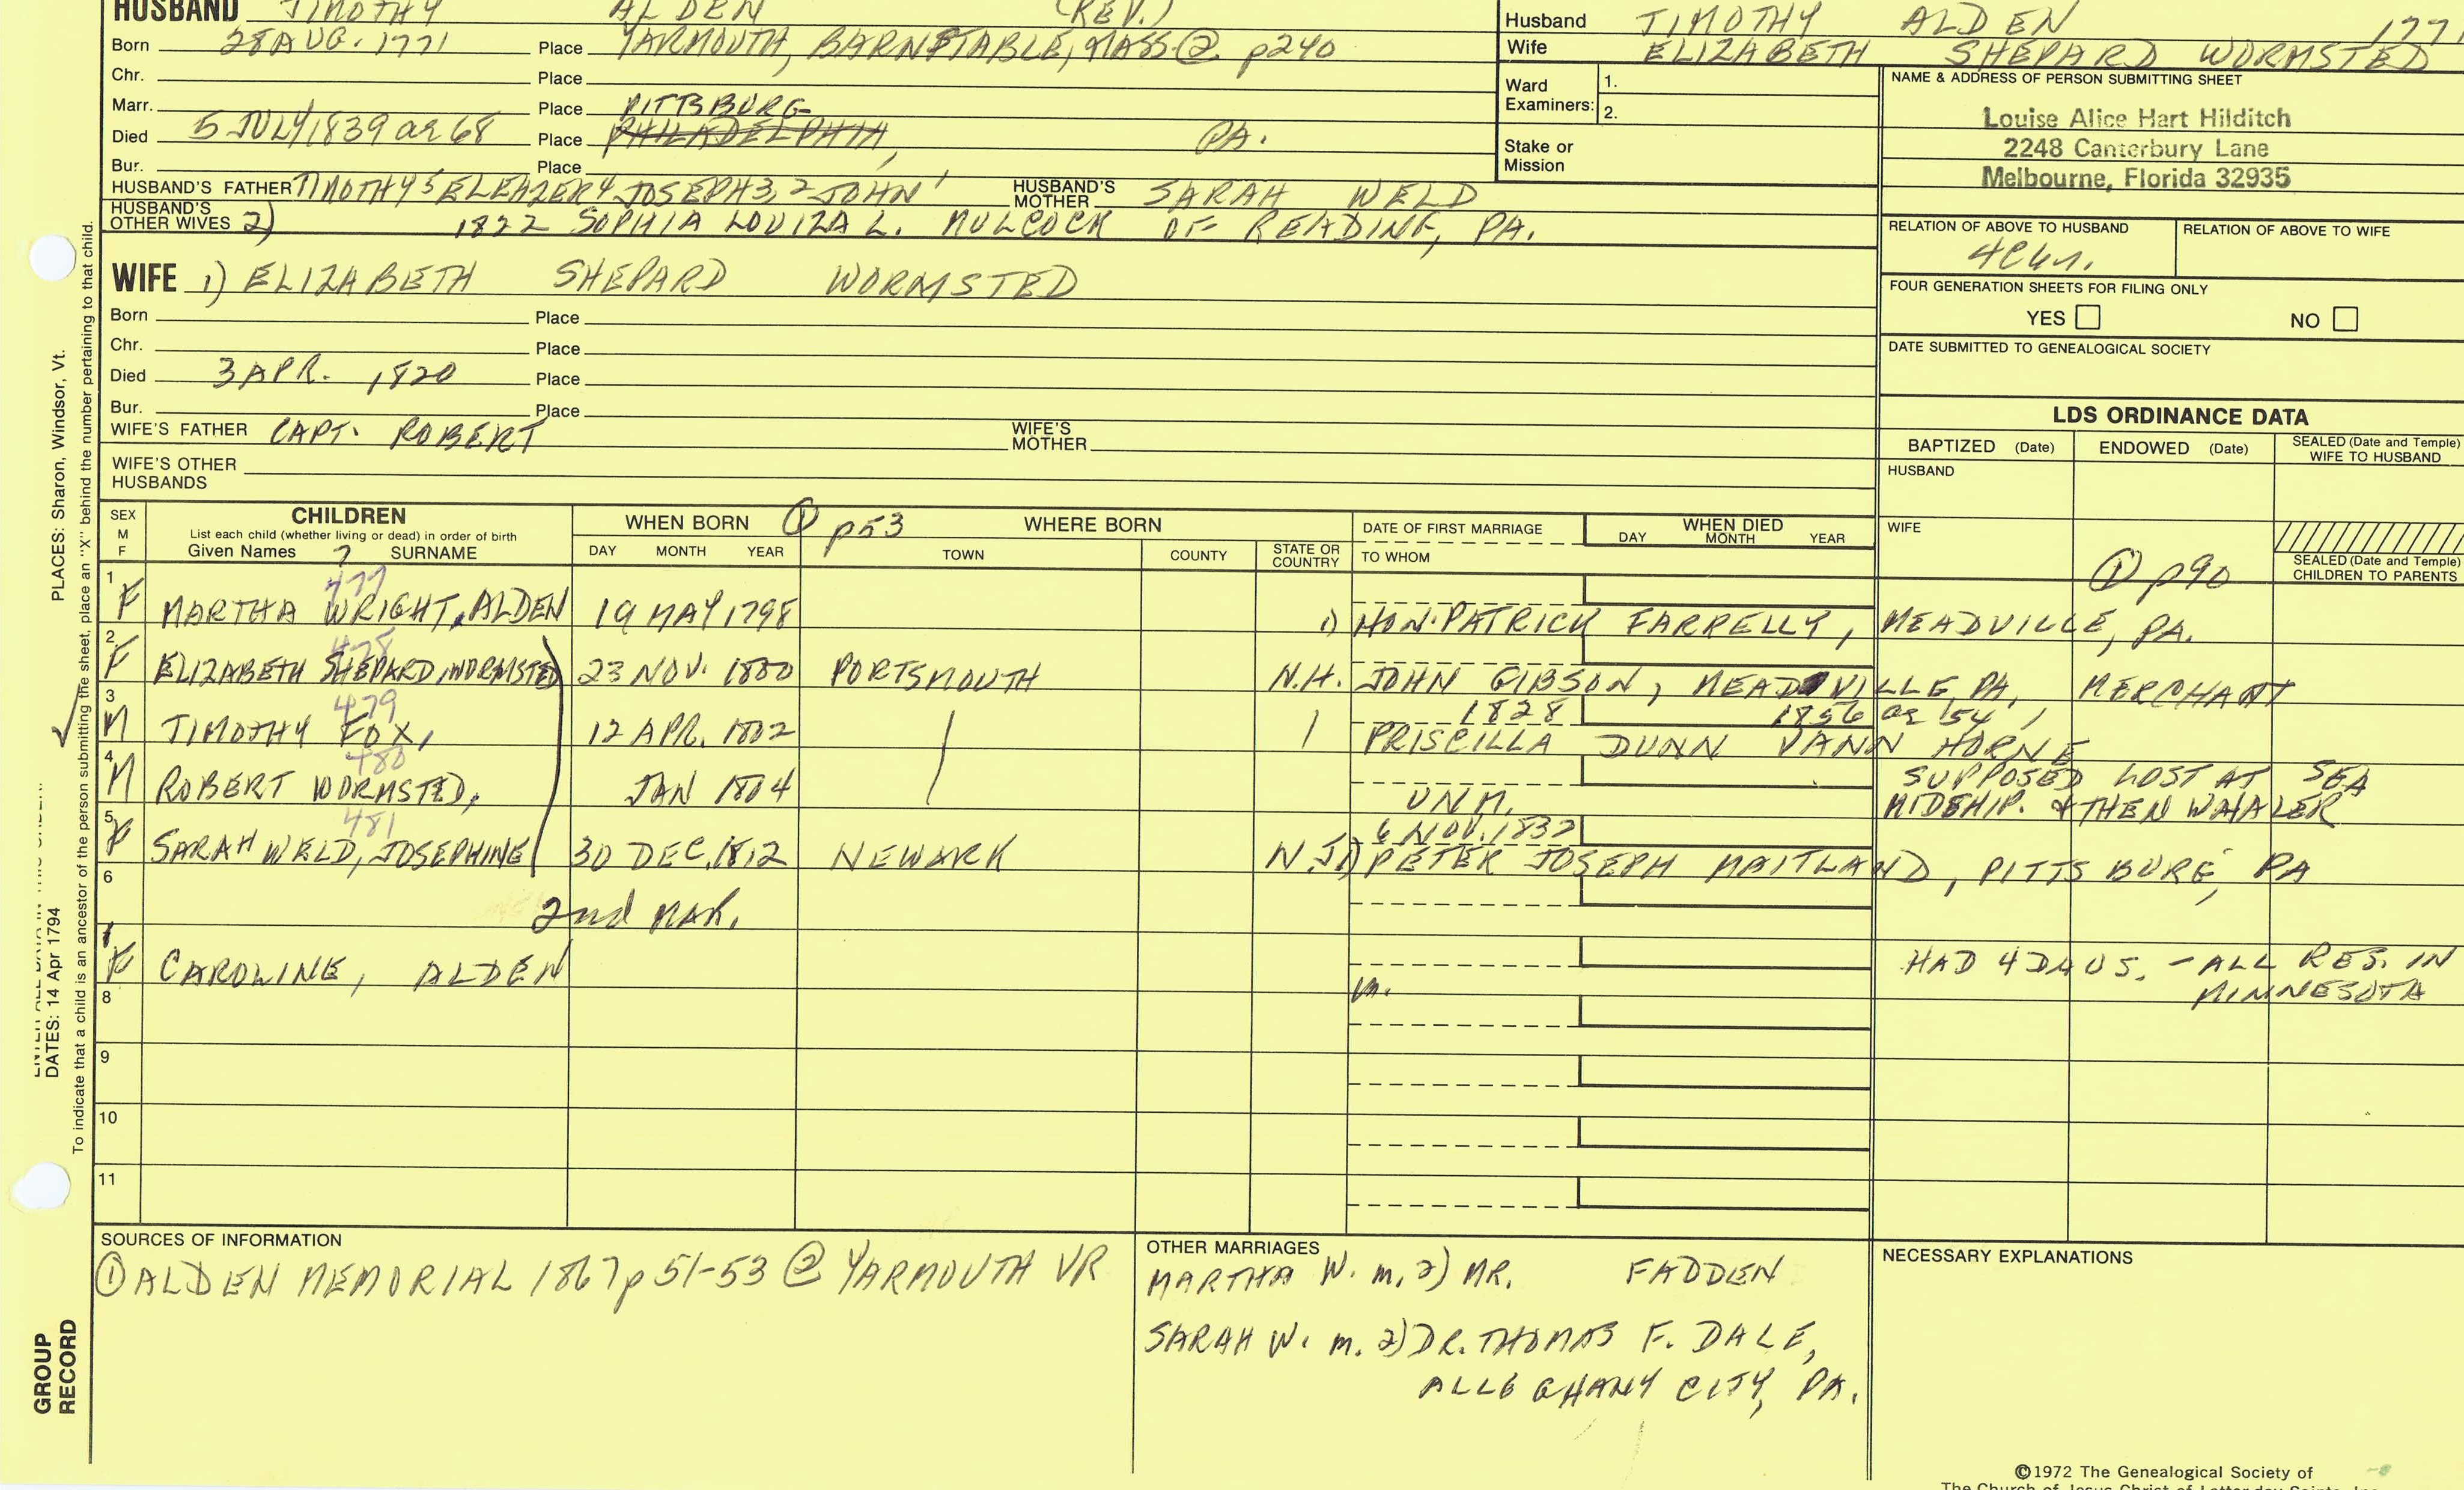 HUSBAND TIMOTHY ALDEN (REV.)
Born 28 AUG. 1771 Place YARMOUTH, BARNSTABLE, MASS ② p240
Chr. Place
Marr. Place PITTSBURG
Died 5 JULY 1839 ae 68 Place PHILADELPHIA, PA.
Bur. Place
HUSBAND'S FATHER TIMOTHY5 ELEAZER4 JOSEPH3,2 JOHN1 HUSBAND'S MOTHER SARAH WELD
HUSBAND'S OTHER WIVES 2) 1822 SOPHIA LOUIZA L. MULCOCK OF READING, PA.
WIFE 1) ELIZABETH SHEPARD WORMSTED
Born Place
Chr. Place
Died 3 APR. 1820 Place
Bur. Place
WIFE'S FATHER CAPT. ROBERT WIFE'S MOTHER
WIFE'S OTHER HUSBANDS
Husband TIMOTHY ALDEN 177
Wife ELIZABETH SHEPARD WORMSTED
Ward Examiners: 1.
2.
Stake or Mission
NAME & ADDRESS OF PERSON SUBMITTING SHEET
Louise Alice Hart Hilditch
2248 Canterbury Lane
Melbourne, Florida 32935
RELATION OF ABOVE TO HUSBAND RELATION OF ABOVE TO WIFE
FOUR GENERATION SHEETS FOR FILING ONLY
YES NO
DATE SUBMITTED TO GENEALOGICAL SOCIETY
LDS ORDINANCE DATA
BAPTIZED (Date) ENDOWED (Date) SEALED (Date and Temple) WIFE TO HUSBAND
HUSBAND
WIFE
① p90
SEALED (Date and Temple) CHILDREN TO PARENTS
SEX M F
CHILDREN
List each child (whether living or dead) in order of birth
Given Names 7 SURNAME
WHEN BORN ① p53 WHERE BORN
DAY MONTH YEAR TOWN COUNTY STATE OR COUNTRY
DATE OF FIRST MARRIAGE
TO WHOM
WHEN DIED
DAY MONTH YEAR
477
1 F MARTHA WRIGHT, ALDEN 19 MAY 1798 1) HON. PATRICK FARRELLY, MEADVILLE, PA.
478
2 F ELIZABETH SHEPARD, WORMSTED 23 NOV. 1800 PORTSMOUTH N.H. JOHN GIBSON, MEADVILLE, PA, MERCHANT
479 1828 1856 ae 54
3 M TIMOTHY FOX, 12 APR. 1802 PRISCILLA DUNN VANN HORNE
480 SUPPOSED LOST AT SEA
4 M ROBERT WORMSTED, JAN 1804 UNM. MIDSHIP. & THEN WHALER
481 6 NOV. 1832
5 F SARAH WELD, JOSEPHINE 30 DEC. 1812 NEWARK N.J. 1) PETER JOSEPH MAITLAND, PITTSBURG, PA
6 2nd MAR.
7 F CAROLINE, ALDEN m. HAD 4 DAUS. - ALL RES. IN
MINNESOTA
8
9
10
11
SOURCES OF INFORMATION
① ALDEN MEMORIAL 1867 p 51-53 ② YARMOUTH VR
OTHER MARRIAGES
MARTHA W. m. 2) MR. FADDEN
SARAH W. m. 2) DR. THOMAS F. DALE,
ALLEGHANY CITY, PA.
NECESSARY EXPLANATIONS
©1972 The Genealogical Society of
The Church of Jesus Christ of Latter-day Saints, Inc.
PLACES: Sharon, Windsor, Vt.
DATES: 14 Apr 1794
To indicate that a child is an ancestor of the person submitting the sheet, place an "X" behind the number pertaining to that child.
GROUP RECORD